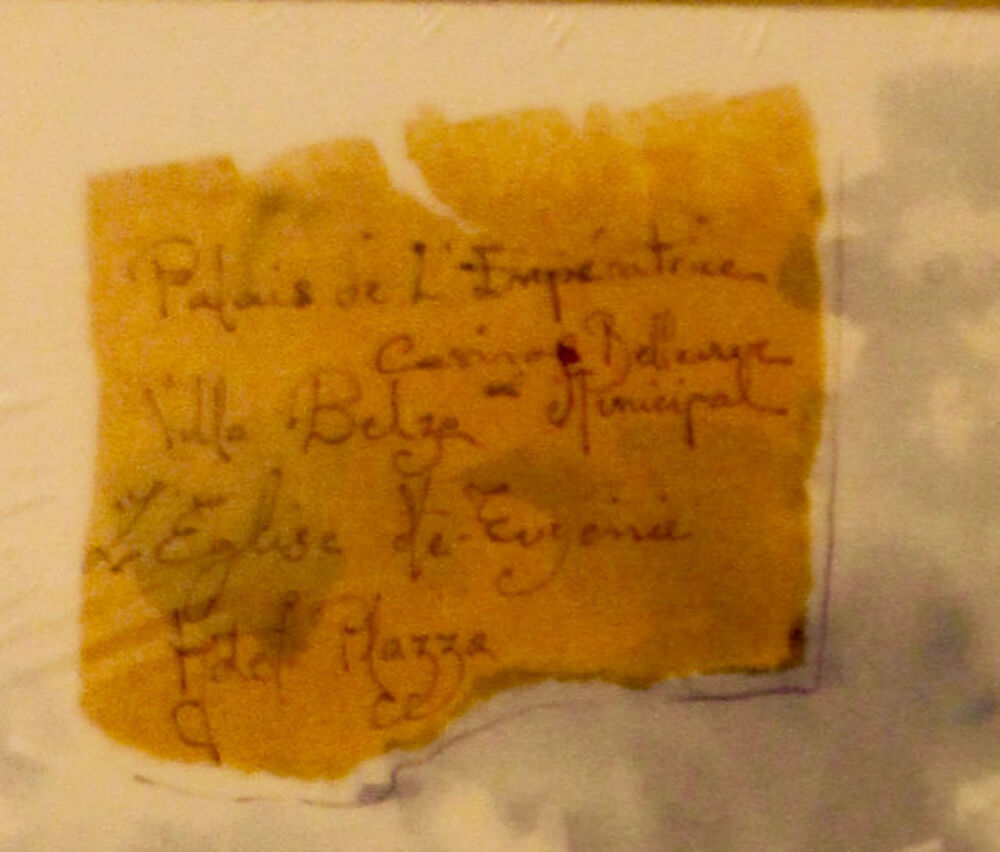 Palais de L'Impératrice
Casinos Bellevue
Villa Belza - Municipal
L'Église Ste-Eugénie
Hotel Plazza